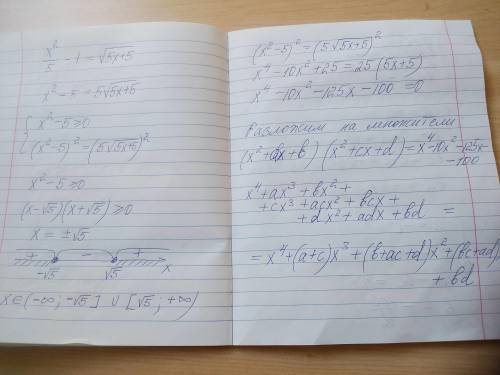 x²/5 - 1 = √5x+5
x² - 5 = 5√5x+5
{ x² - 5 ≥ 0
(x² - 5)² = (5√5x+5)²
x² - 5 ≥ 0
(x-√5)(x+√5) ≥ 0
x = ±√5
+ - +
-√5 √5 x
x ∈ (-∞; -√5] ∪ [√5; +∞)
(x² - 5)² = (5√5x+5)²
x⁴ - 10x² + 25 = 25(5x+5)
x⁴ - 10x² - 125x - 100 = 0
Разложим на множители
(x² + ax + b)(x² + cx + d) = x⁴ - 10x² - 125x -
- 100
x⁴ + ax³ + bx² +
+ cx³ + acx² + bcx +
+ dx² + adx + bd =
= x⁴ + (a+c)x³ + (b+ac+d)x² + (bc+ad)
+ bd